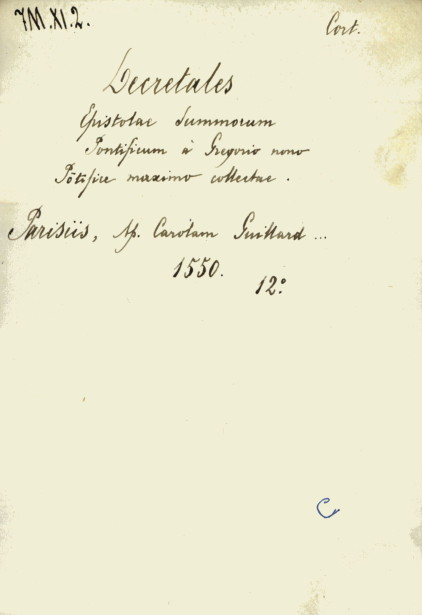 7M.XI.2.
Cort.
Decretales
Epistolae Summorum
Pontificum à Gregorio nono
Pōtifice maximo collectae.
Parisiis, Ap. Carolam Guillard ...
1550.
12°
C